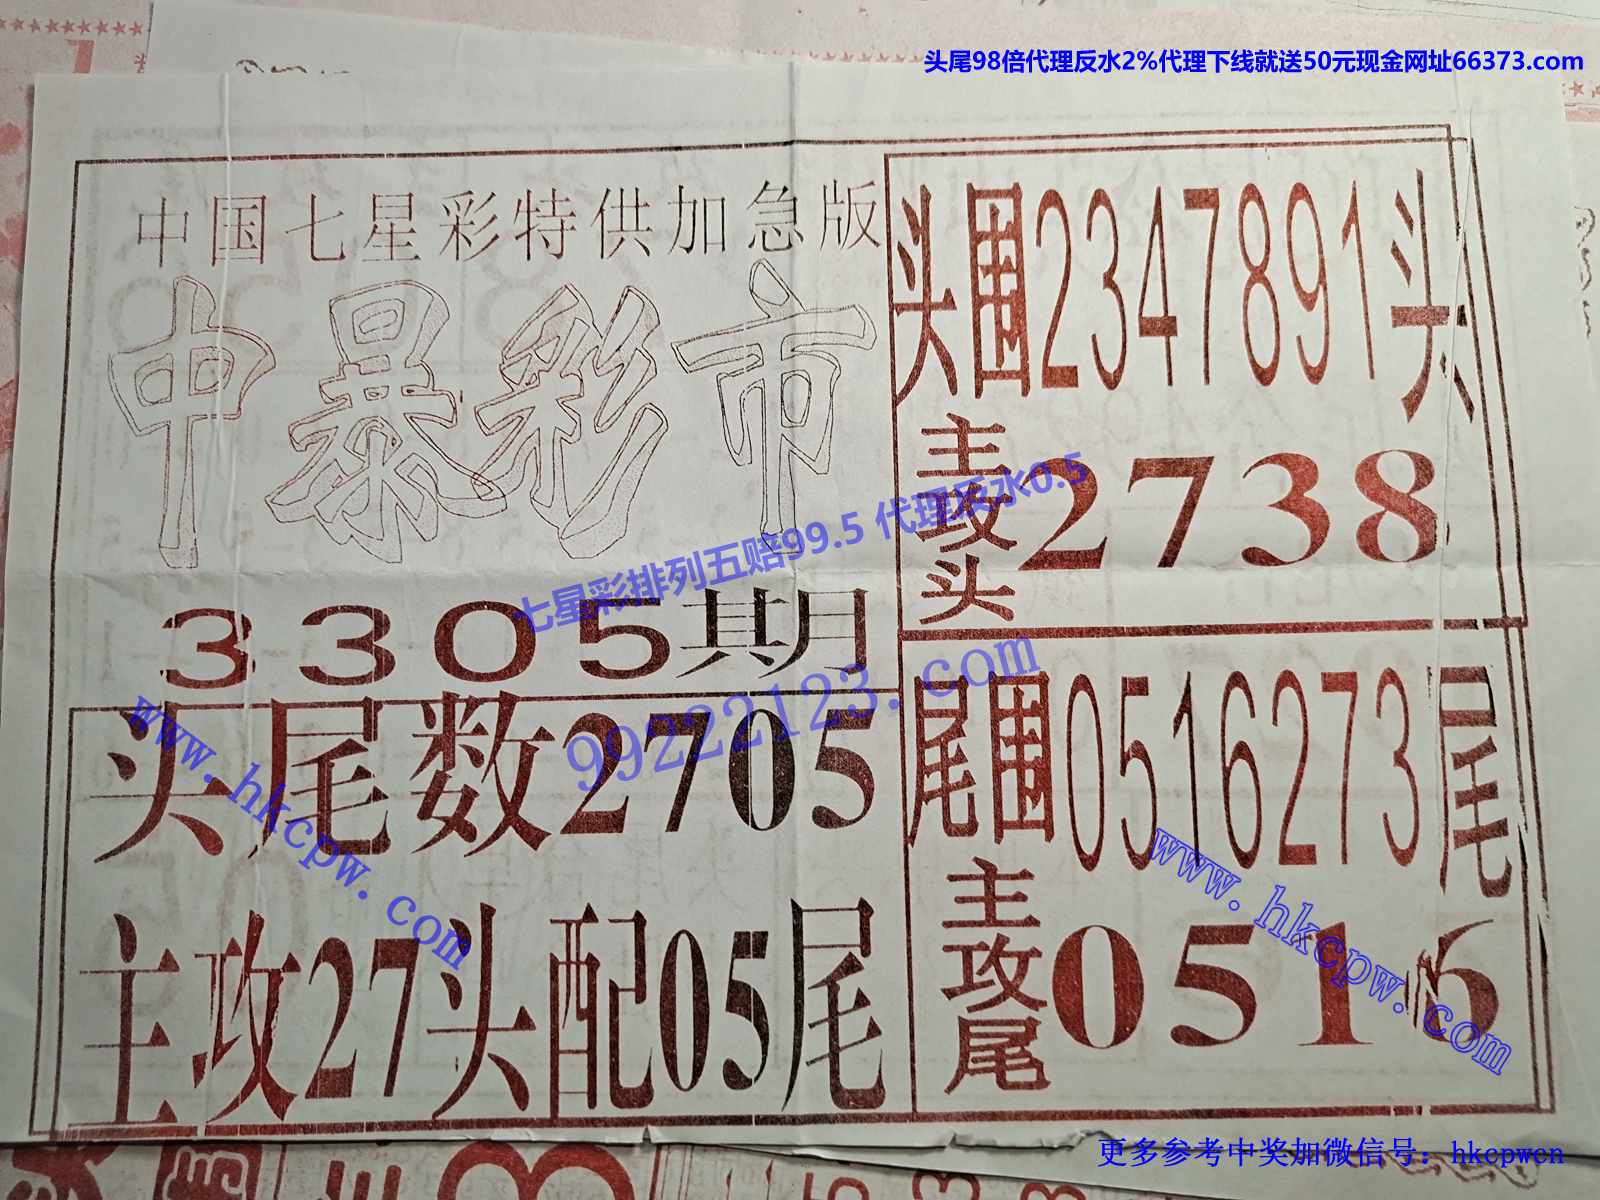 头尾98倍代理反水2%代理下线就送50元现金网址66373.com
中国七星彩特供加急版
中暴彩市
3305期
头尾数2705
主攻27头配05尾
头围2347891头
主攻头2738
尾围0516273尾
主攻尾0516
七星彩排列五赔99.5 代理反水0.5
99222123.com
www.hkcpw.com
www.hkcpw.com
更多参考中奖加微信号：hkcpwcn